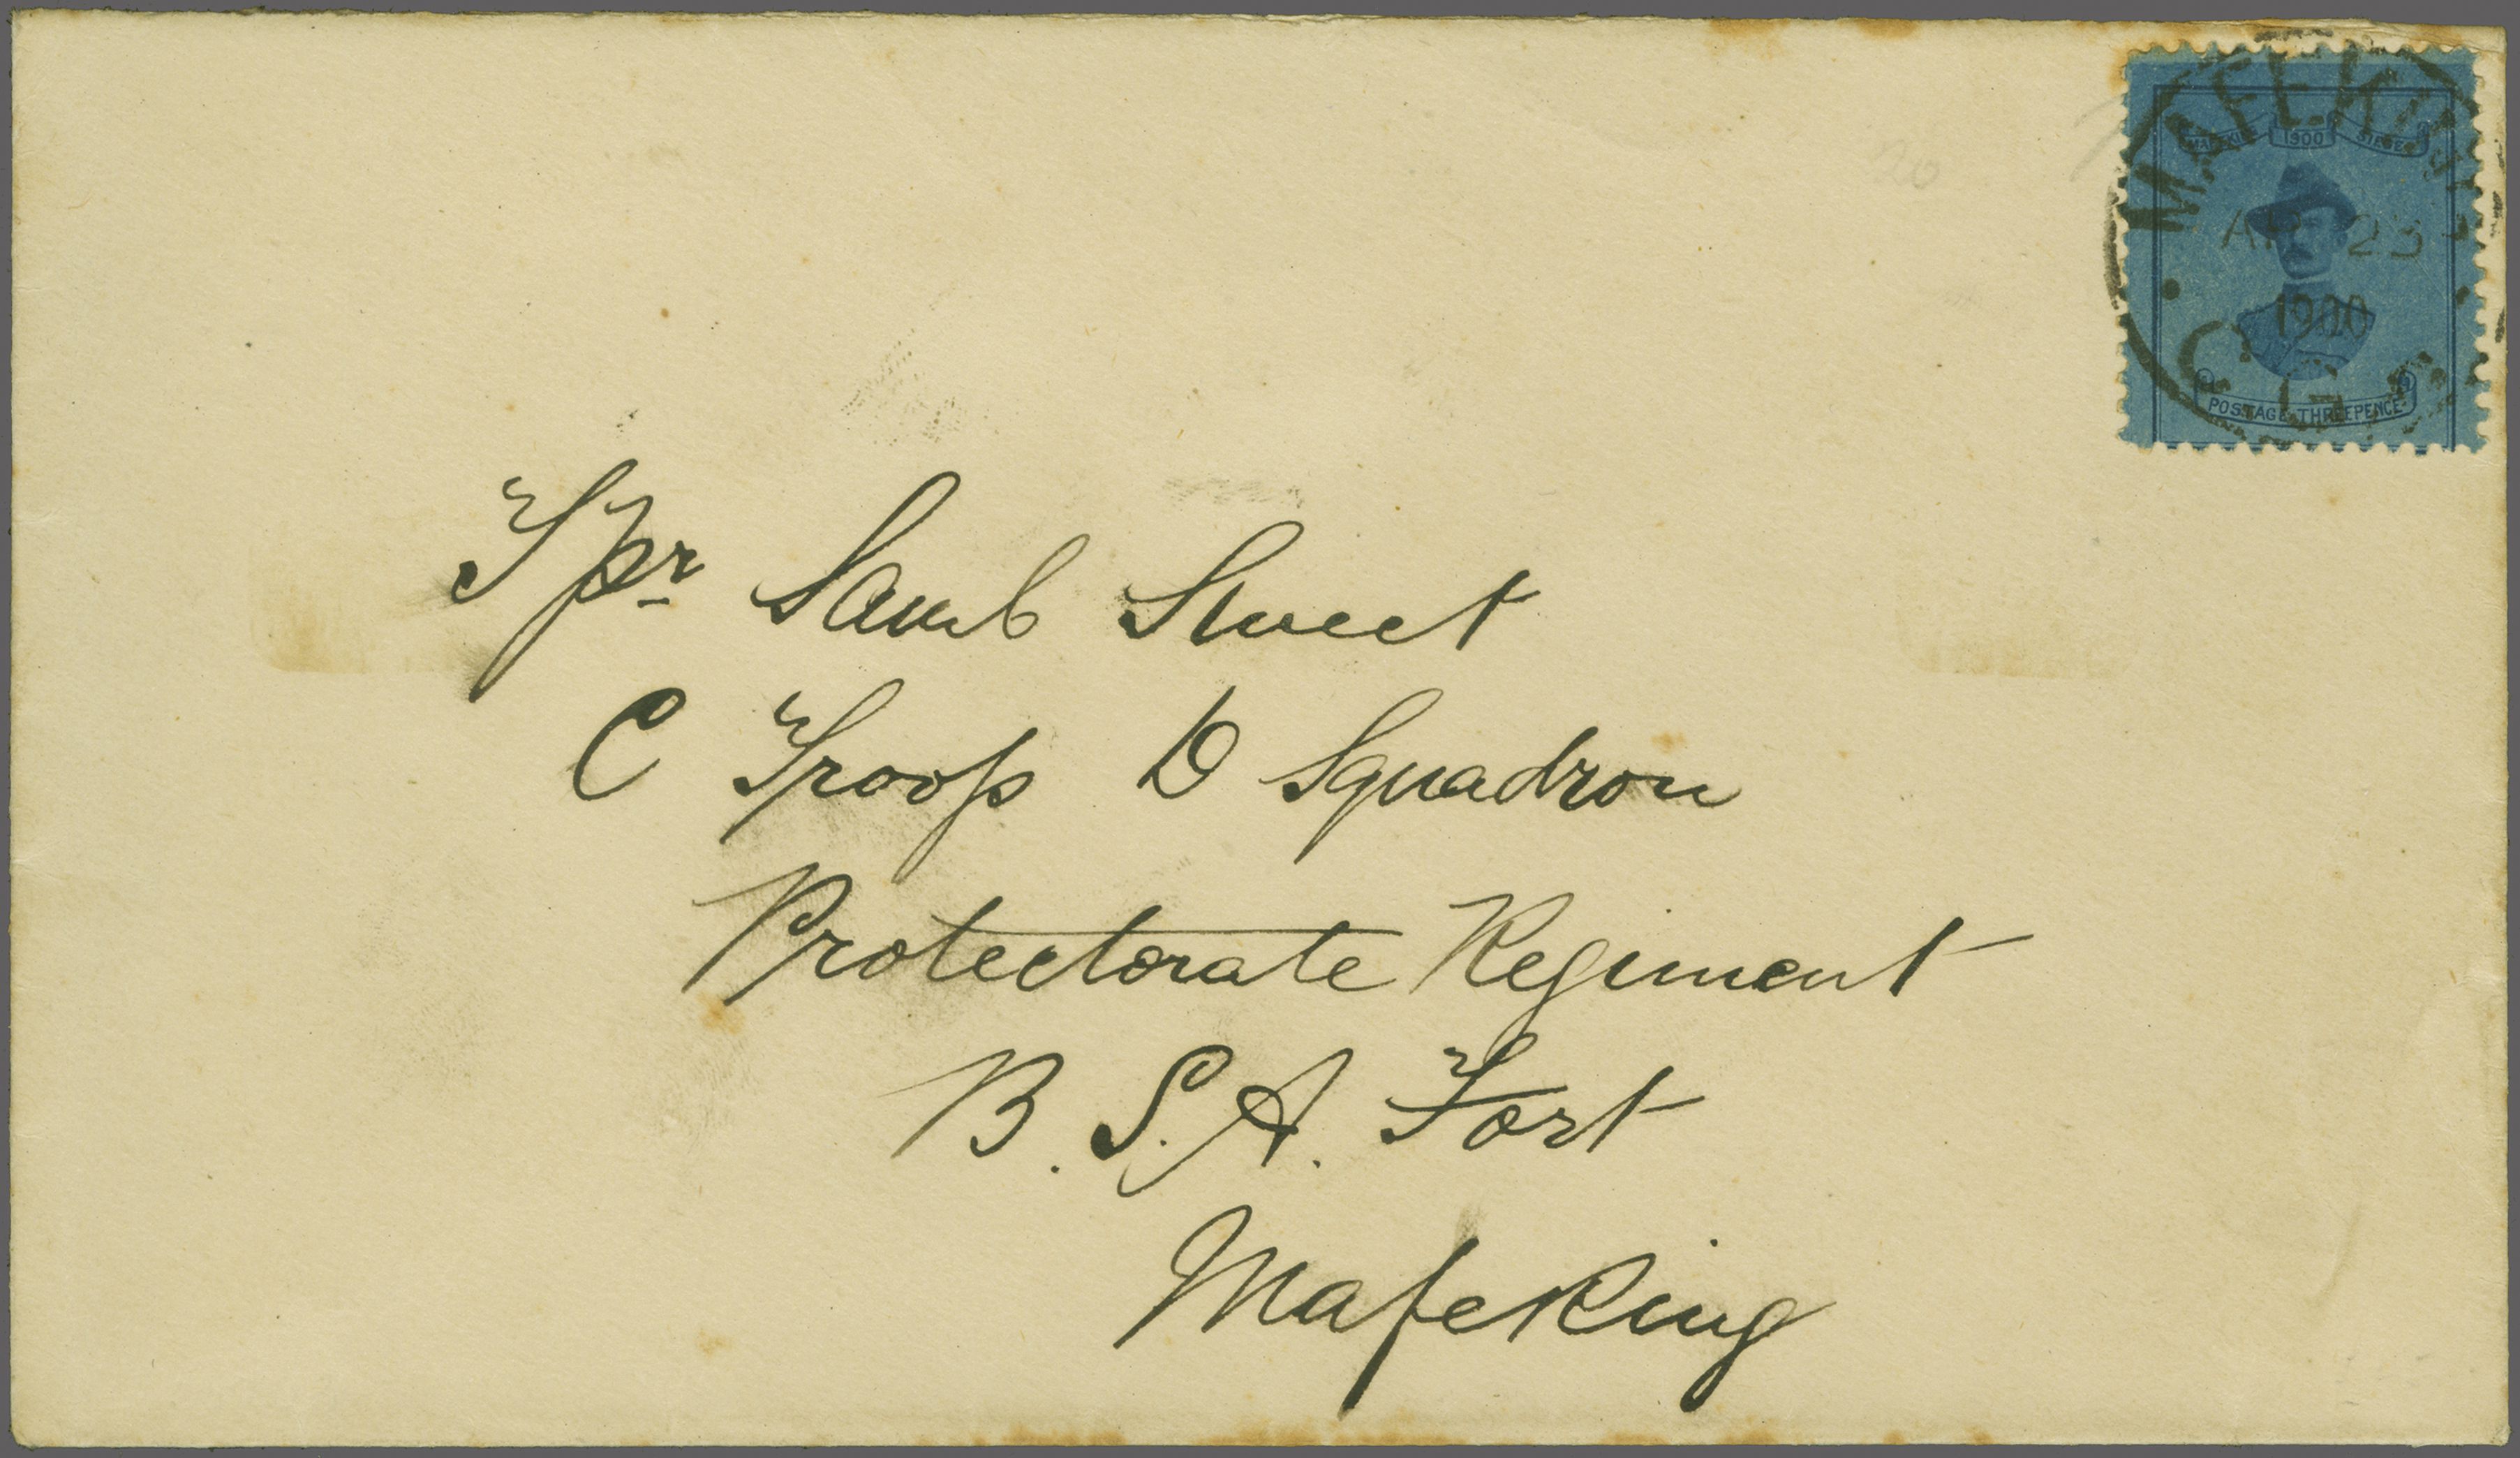 MAFEKING
AP 23
1900
C.G.H.
MAFEKING 1900 SIEGE
POSTAGE THREEPENCE
Tpr Saml Sweet
C Troop D Squadron
Protectorate Regiment
B.S.A. Fort
Mafeking